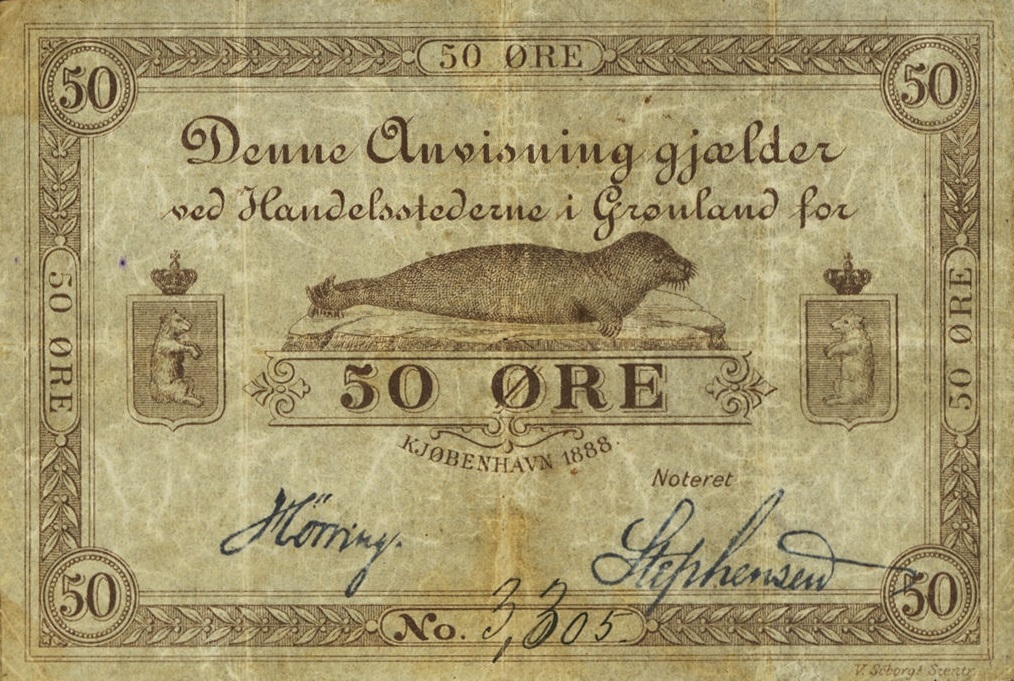 50 ØRE
50 50
Denne Anvisning gjælder
ved Handelsstederne i Grønland for
50 ØRE
50 ØRE
50 ØRE
KJØBENHAVN 1888.
Noteret
Hörring.
Stephensen
50 50
No. 3,305.
V. Söborgs